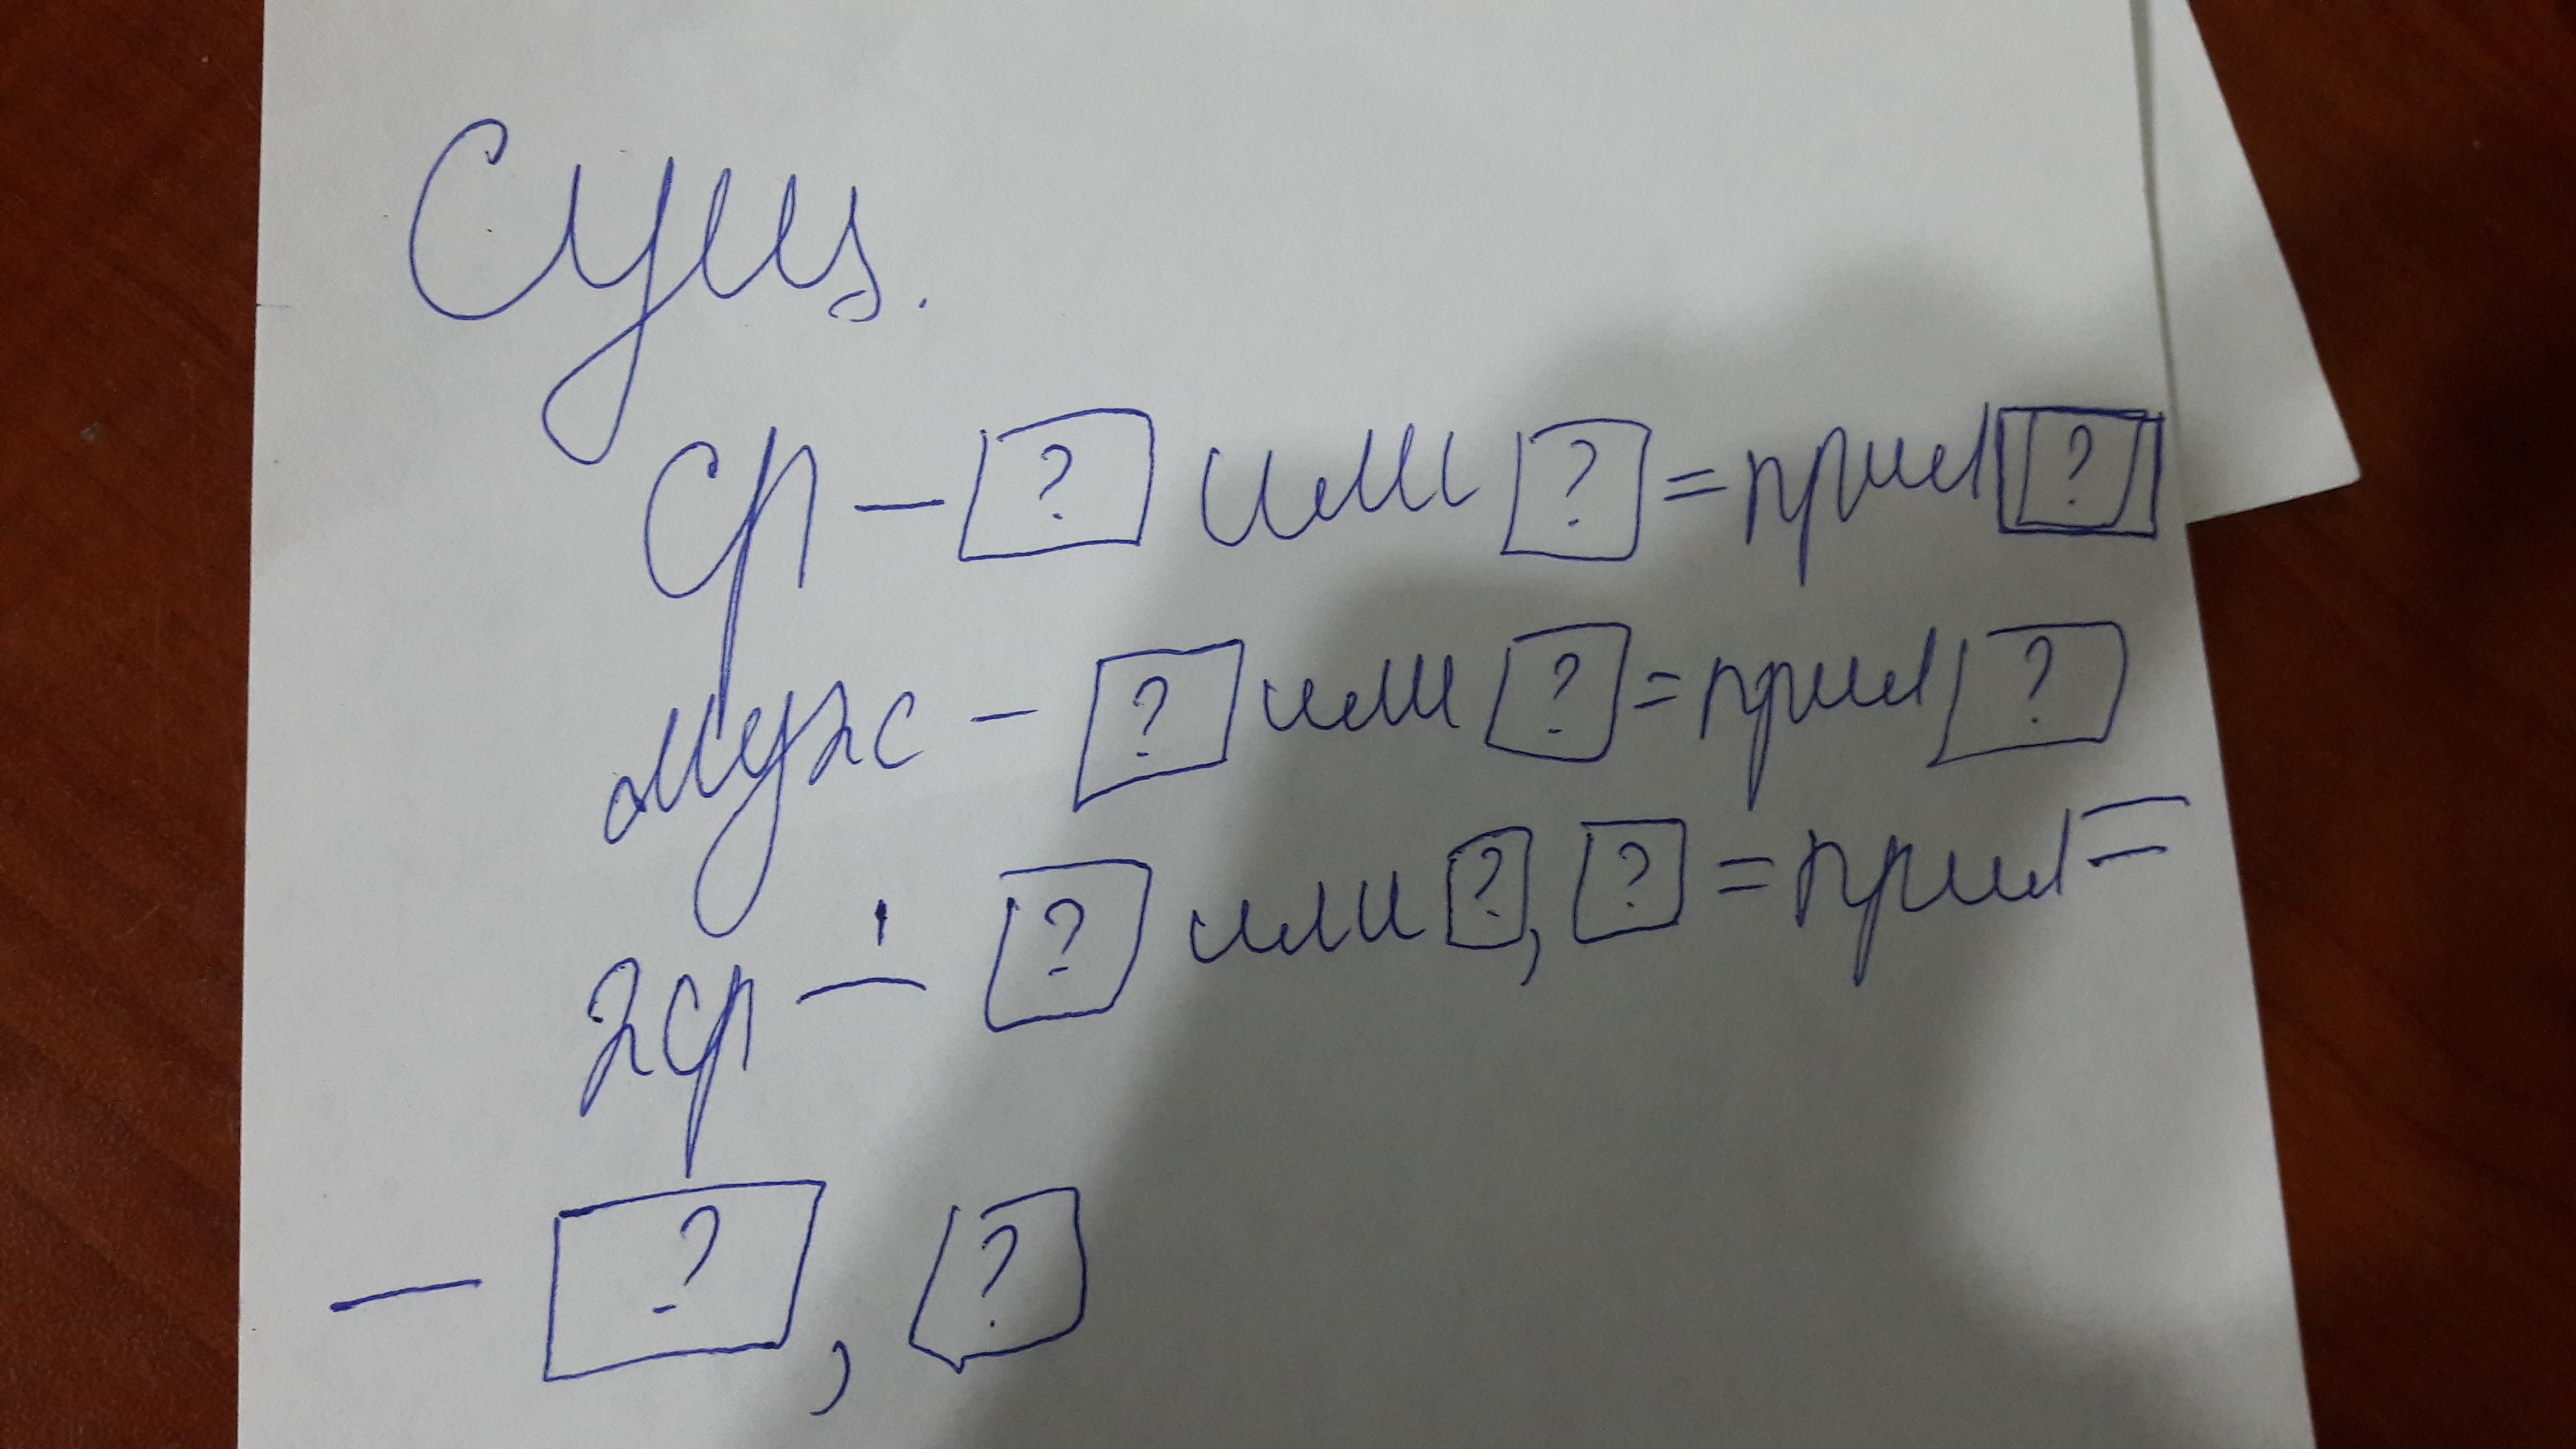 Сущ.
ср – ? или ? = прил ?
муж – ? или ? = прил ?
2ср – ? или ?, ? = прил =
– ?, ?